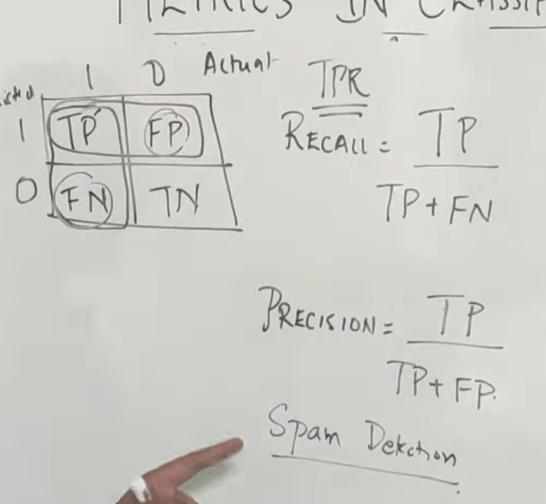 METRICS IN CLASSIF
1 0 Actual
1 TP FP
0 FN TN
TPR
RECALL = TP
TP + FN
PRECISION = TP
TP + FP.
Spam Detection